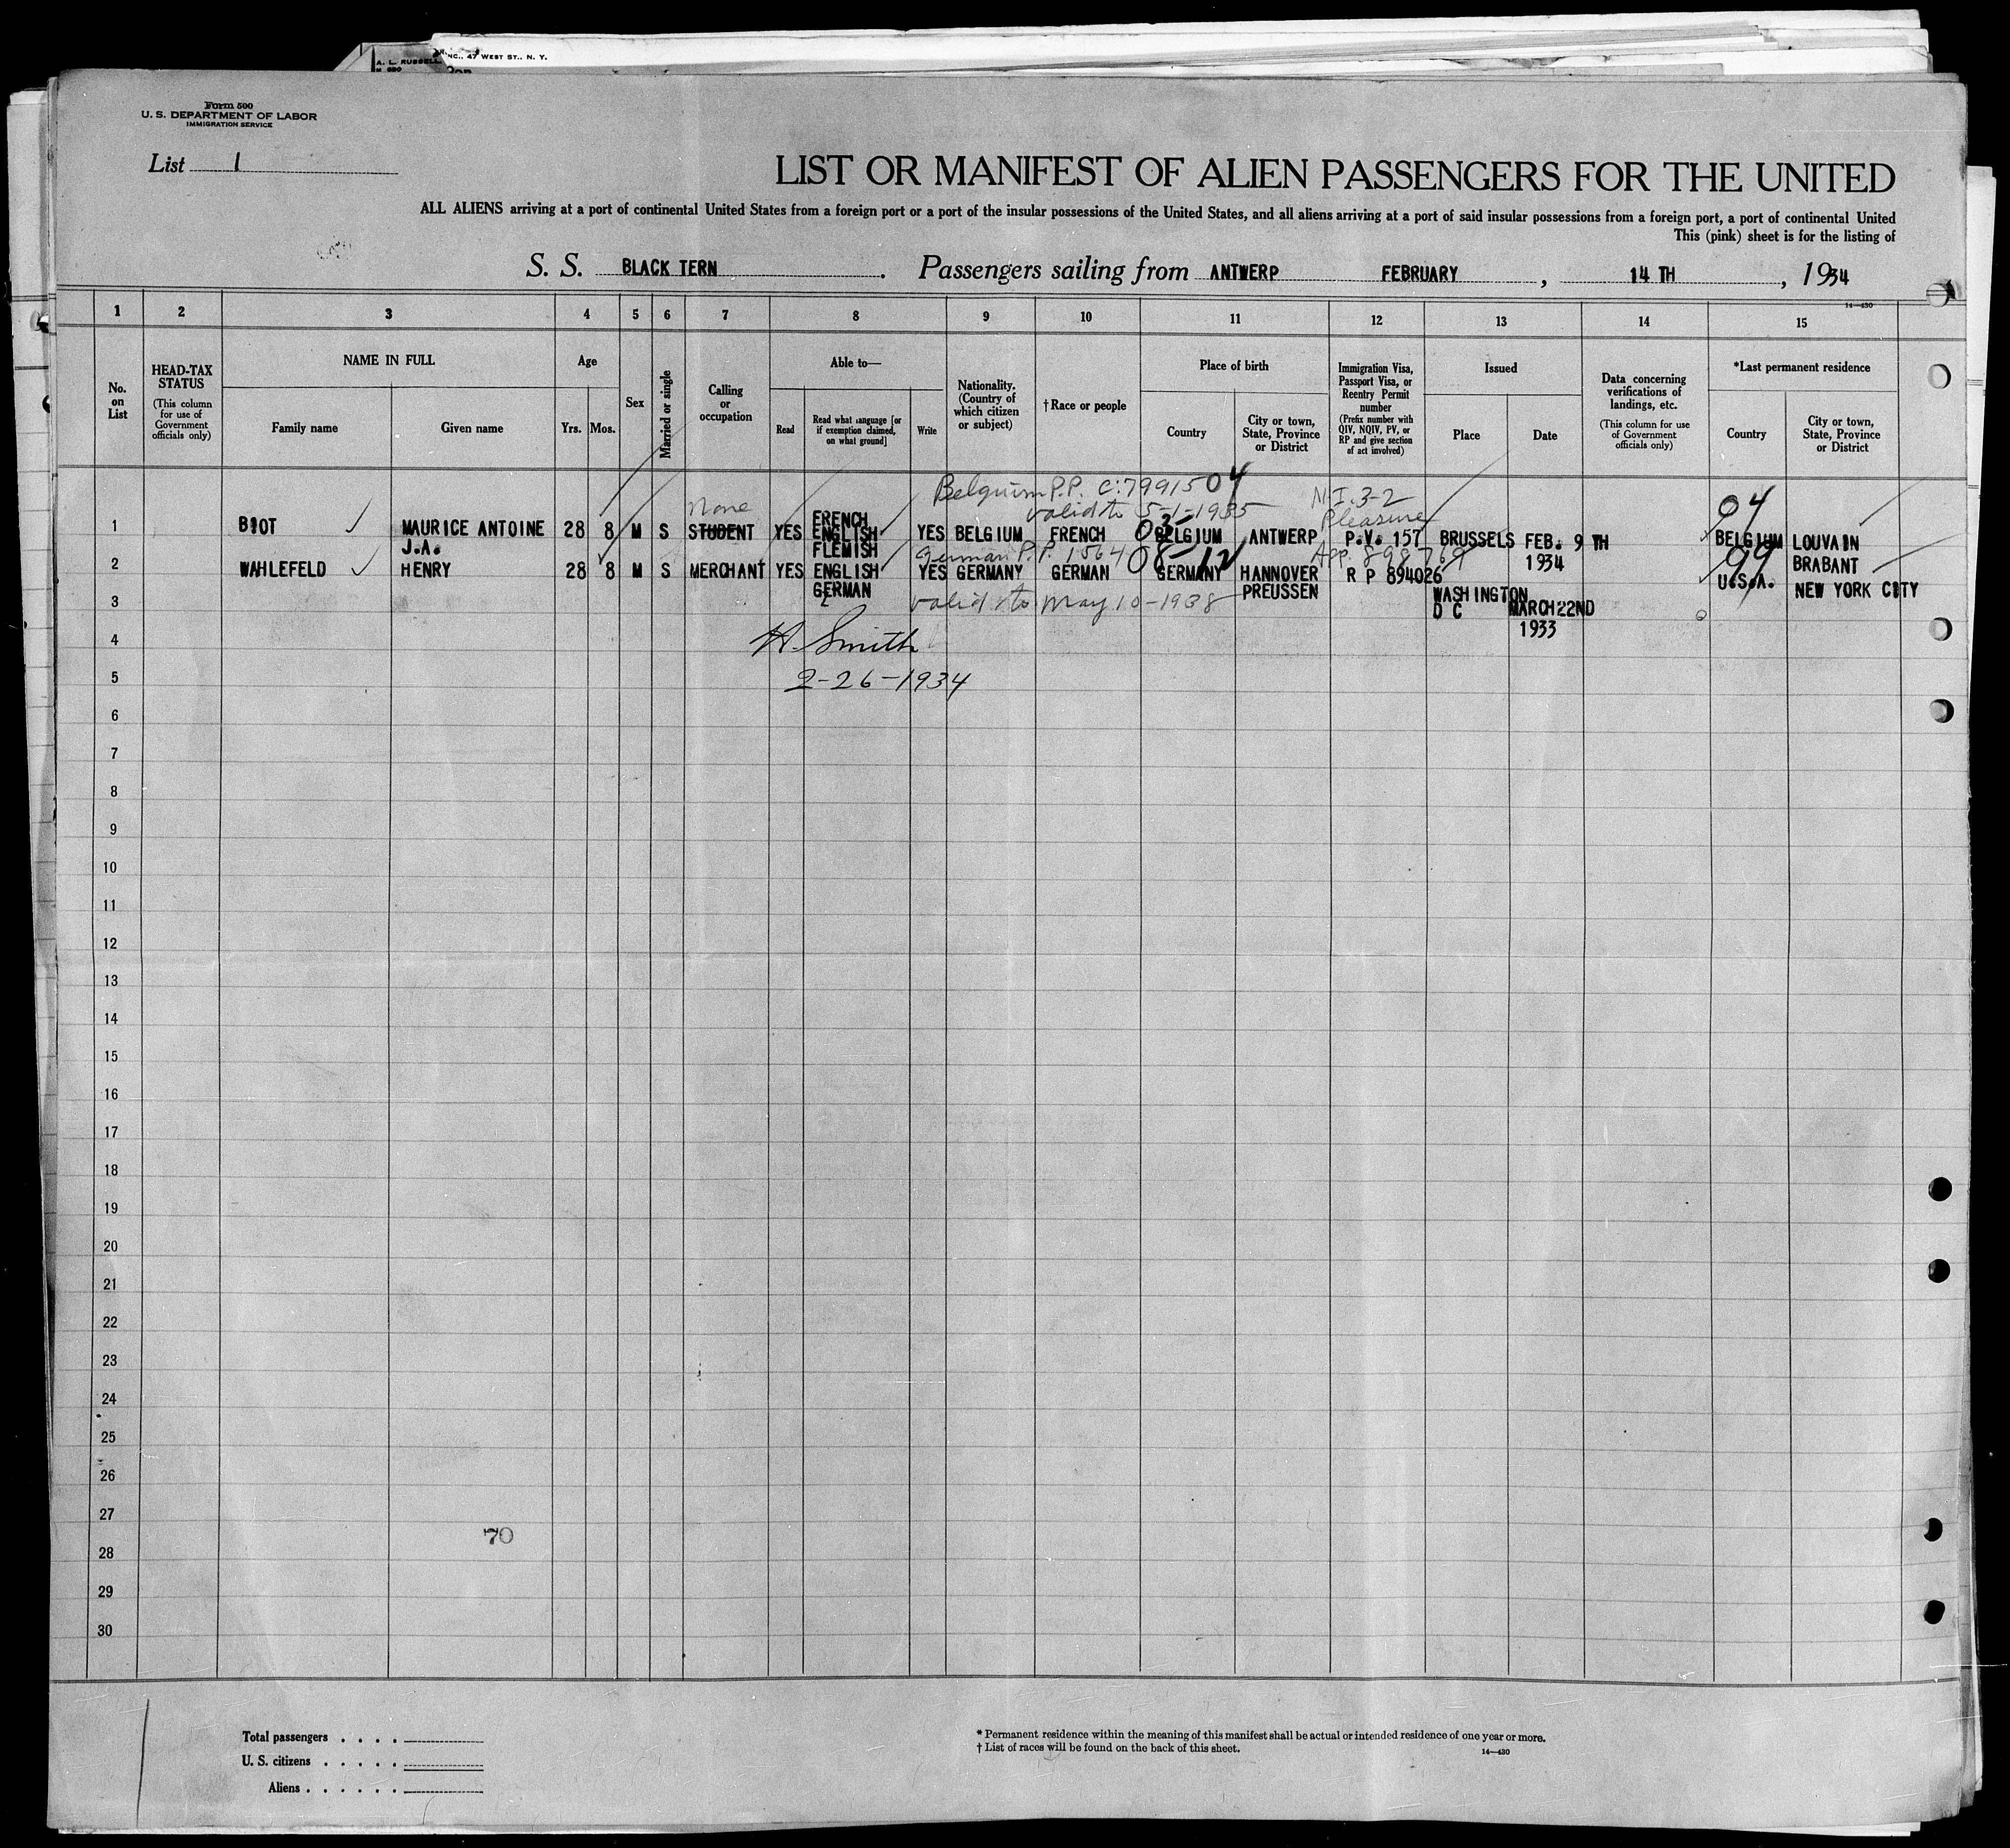 A. L. RUSSELL, INC., 47 WEST ST., N. Y.
Form 500
U. S. DEPARTMENT OF LABOR
IMMIGRATION SERVICE
List 1
LIST OR MANIFEST OF ALIEN PASSENGERS FOR THE UNITED
ALL ALIENS arriving at a port of continental United States from a foreign port or a port of the insular possessions of the United States, and all aliens arriving at a port of said insular possessions from a foreign port, a port of continental United
This (pink) sheet is for the listing of
S. S. BLACK TERN. Passengers sailing from ANTWERP FEBRUARY, 14 TH, 1934
14—430
1 2 3 4 5 6 7 8 9 10 11 12 13 14 15
No. on List
HEAD-TAX STATUS
(This column for use of Government officials only)
NAME IN FULL
Family name
Given name
Age
Yrs.
Mos.
Sex
Married or single
Calling or occupation
Able to—
Read
Read what language [or if exemption claimed, on what ground]
Write
Nationality. (Country of which citizen or subject)
† Race or people
Place of birth
Country
City or town, State, Province or District
Immigration Visa, Passport Visa, or Reentry Permit number
(Prefix number with QIV, NQIV, PV, or RP and give section of act involved)
Issued
Place
Date
Data concerning verifications of landings, etc.
(This column for use of Government officials only)
*Last permanent residence
Country
City or town, State, Province or District
Belguim P.P. C:799150 04
None valid to 5-1-1935 N-I. 3-2 Pleasure 04
1 BIOT MAURICE ANTOINE J.A. 28 8 M S STUDENT YES FRENCH ENGLISH FLEMISH YES BELGIUM FRENCH BELGIUM ANTWERP P.V. 157 BRUSSELS FEB. 9 TH 1934 BELGIUM LOUVAIN BRABANT
German P.P. 1564 08-12 App. 898769 99
2 WAHLEFELD HENRY 28 8 M S MERCHANT YES ENGLISH GERMAN YES GERMANY GERMAN GERMANY HANNOVER PREUSSEN R P 894026 WASHINGTON D C MARCH 22ND 1933 U.S.A. NEW YORK CITY
valid to May 10-1938
3
4 H Smith
5 2-26-1934
6
7
8
9
10
11
12
13
14
15
16
17
18
19
20
21
22
23
24
25
26
27
70
28
29
30
Total passengers . . . .
U. S. citizens . . . . .
Aliens . . . . . .
* Permanent residence within the meaning of this manifest shall be actual or intended residence of one year or more.
† List of races will be found on the back of this sheet.
14—430